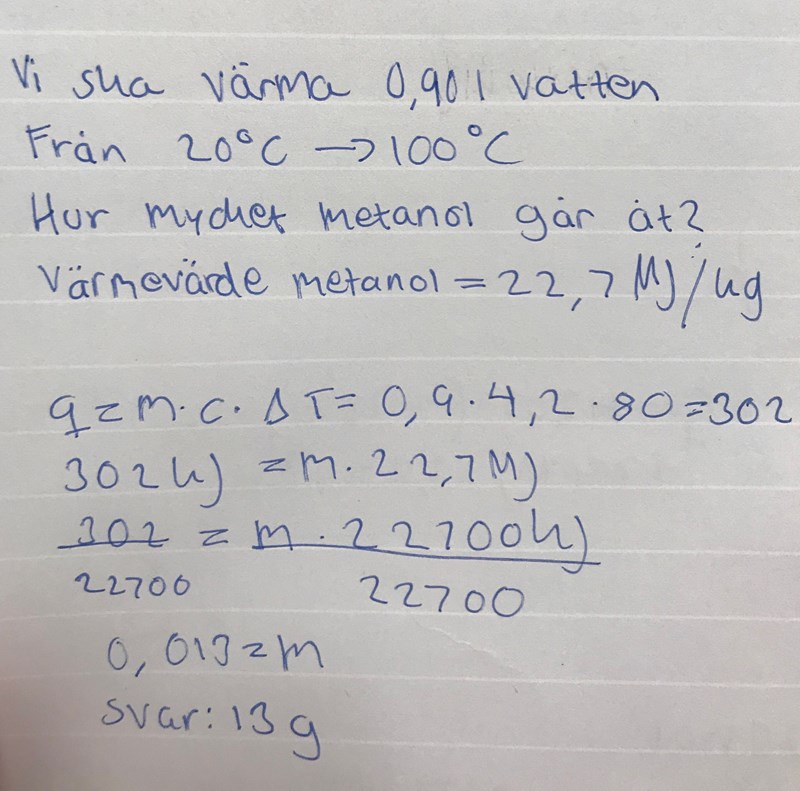 Vi ska värma 0,90 l vatten
Från 20°C → 100°C
Hur mycket metanol går åt?
Värmevärde metanol = 22,7 MJ/kg
q = m · c · ΔT = 0,9 · 4,2 · 80 = 302
302 kJ = m · 22,7 MJ
302 = m · 22700 kJ
22700 22700
0,013 = m
svar: 13 g